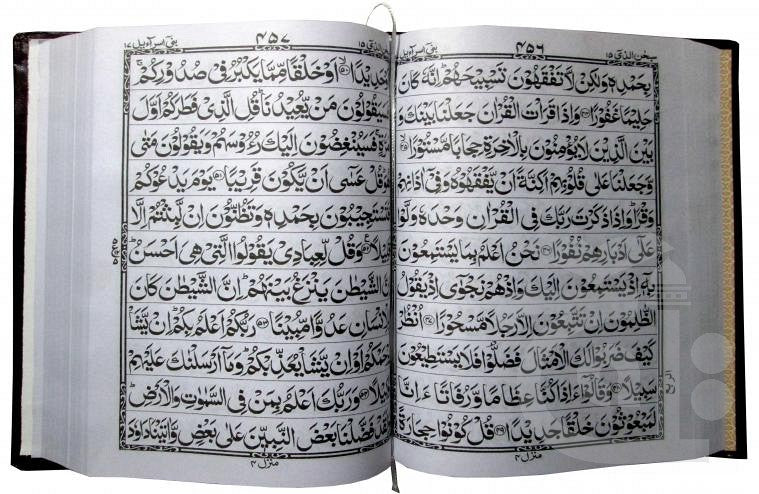 سبحن الذی ۱۵
۴۵۶
بنی اسرآءیل ۱۷
بِحَمْدِهٖ وَلٰكِنْ لَّا تَفْقَهُوْنَ تَسْبِيْحَهُمْ ؕ اِنَّهٗ كَانَ
حَلِيْمًا غَفُوْرًا ﴿۴۴﴾ وَاِذَا قَرَاْتَ الْقُرْاٰنَ جَعَلْنَا بَيْنَكَ وَ
بَيْنَ الَّذِيْنَ لَا يُؤْمِنُوْنَ بِالْاٰخِرَةِ حِجَابًا مَّسْتُوْرًا ﴿۴۵﴾
وَّجَعَلْنَا عَلٰى قُلُوْبِهِمْ اَكِنَّةً اَنْ يَّفْقَهُوْهُ وَفِيْۤ اٰذَانِهِمْ
وَقْرًا ؕ وَاِذَا ذَكَرْتَ رَبَّكَ فِى الْقُرْاٰنِ وَحْدَهٗ وَلَّوْا
عَلٰۤى اَدْبَارِهِمْ نُفُوْرًا ﴿۴۶﴾ نَحْنُ اَعْلَمُ بِمَا يَسْتَمِعُوْنَ
بِهٖۤ اِذْ يَسْتَمِعُوْنَ اِلَيْكَ وَاِذْ هُمْ نَجْوٰۤى اِذْ يَقُوْلُ
الظّٰلِمُوْنَ اِنْ تَتَّبِعُوْنَ اِلَّا رَجُلًا مَّسْحُوْرًا ﴿۴۷﴾ اُنْظُرْ
كَيْفَ ضَرَبُوْا لَكَ الْاَمْثَالَ فَضَلُّوْا فَلَا يَسْتَطِيْعُوْنَ
سَبِيْلًا ﴿۴۸﴾ وَقَالُوْۤا ءَاِذَا كُنَّا عِظَامًا وَّرُفَاتًا ءَاِنَّا
لَمَبْعُوْثُوْنَ خَلْقًا جَدِيْدًا ﴿۴۹﴾ قُلْ كُوْنُوْا حِجَارَةً
منزل ۴
۱۵
۴۵۷
بنی اسرآءیل ۱۷
حَدِيْدًا ﴿۵۰﴾ اَوْ خَلْقًا مِّمَّا يَكْبُرُ فِيْ صُدُوْرِكُمْ ۚ
فَسَيَقُوْلُوْنَ مَنْ يُّعِيْدُنَا ؕ قُلِ الَّذِيْ فَطَرَكُمْ اَوَّلَ
مَرَّةٍ ۚ فَسَيُنْغِضُوْنَ اِلَيْكَ رُءُوْسَهُمْ وَيَقُوْلُوْنَ مَتٰى
هُوَ ؕ قُلْ عَسٰۤى اَنْ يَّكُوْنَ قَرِيْبًا ﴿۵۱﴾ يَوْمَ يَدْعُوْكُمْ
فَتَسْتَجِيْبُوْنَ بِحَمْدِهٖ وَتَظُنُّوْنَ اِنْ لَّبِثْتُمْ اِلَّا
قَلِيْلًا ﴿۵۲﴾ وَقُلْ لِّعِبَادِيْ يَقُوْلُوا الَّتِيْ هِيَ اَحْسَنُ ؕ
اِنَّ الشَّيْطٰنَ يَنْزَغُ بَيْنَهُمْ ؕ اِنَّ الشَّيْطٰنَ كَانَ
لِلْاِنْسَانِ عَدُوًّا مُّبِيْنًا ﴿۵۳﴾ رَبُّكُمْ اَعْلَمُ بِكُمْ ؕ اِنْ يَّشَاْ
يَرْحَمْكُمْ اَوْ اِنْ يَّشَاْ يُعَذِّبْكُمْ ؕ وَمَاۤ اَرْسَلْنٰكَ عَلَيْهِمْ
وَكِيْلًا ﴿۵۴﴾ وَرَبُّكَ اَعْلَمُ بِمَنْ فِى السَّمٰوٰتِ وَالْاَرْضِ ؕ
وَلَقَدْ فَضَّلْنَا بَعْضَ النَّبِيّٖنَ عَلٰى بَعْضٍ وَّاٰتَيْنَا دَاوٗدَ
منزل ۴